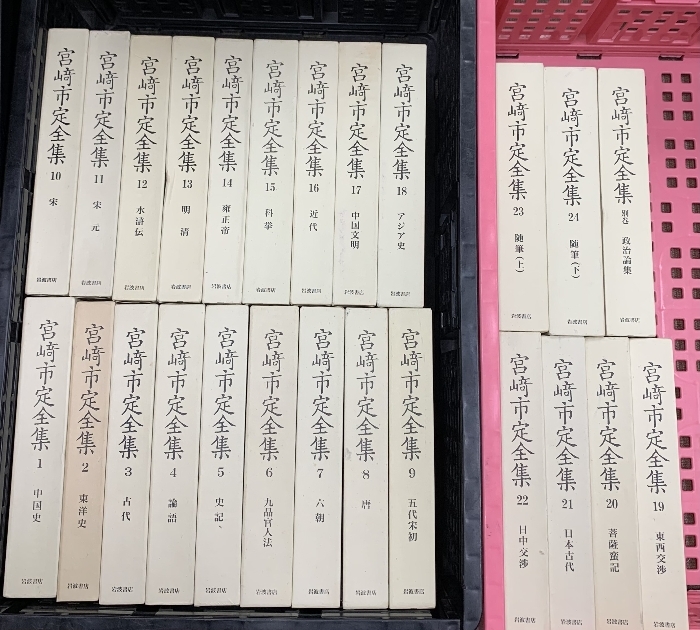 宮﨑市定全集 10 宋 岩波書店
宮﨑市定全集 11 宋 元
宮﨑市定全集 12 水滸伝 岩波書店
宮﨑市定全集 13 明 清 岩波書店
宮﨑市定全集 14 雍正帝 岩波書店
宮﨑市定全集 15 科挙 岩波書店
宮﨑市定全集 16 近代 岩波書店
宮﨑市定全集 17 中国文明 岩波書店
宮﨑市定全集 18 アジア史 岩波書店
宮﨑市定全集 1 中国史 岩波書店
宮﨑市定全集 2 東洋史 岩波書店
宮﨑市定全集 3 古代 岩波書店
宮﨑市定全集 4 論語 岩波書店
宮﨑市定全集 5 史記 岩波書店
宮﨑市定全集 6 九品官人法 岩波書店
宮﨑市定全集 7 六朝 岩波書店
宮﨑市定全集 8 唐 岩波書店
宮﨑市定全集 9 五代宋初 岩波書店
宮﨑市定全集 23 随筆(上) 岩波書店
宮﨑市定全集 24 随筆(下) 岩波書店
宮﨑市定全集 別巻 政治論集 岩波書店
宮﨑市定全集 22 日中交渉 岩波書店
宮﨑市定全集 21 日本古代 岩波書店
宮﨑市定全集 20 菩薩蛮記 岩波書店
宮﨑市定全集 19 東西交渉 岩波書店